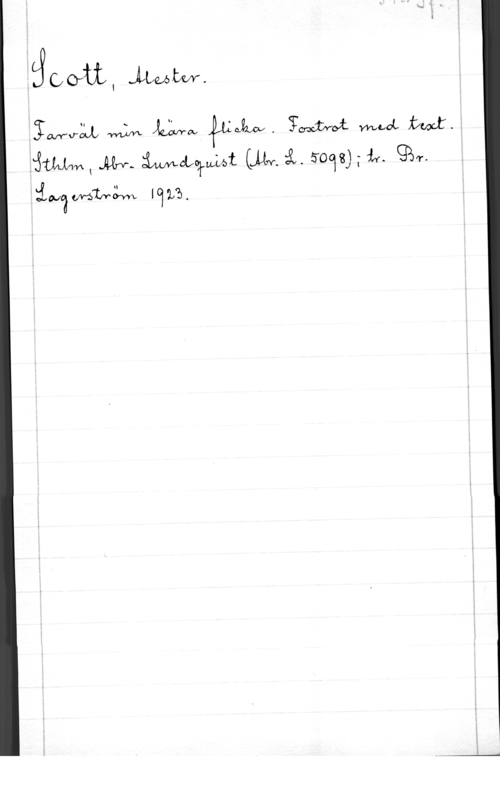 Scott, Alester.
Farväl min kära flicka. Foxtrot med text.
Sthlm, Abr. Lundquist (Abr. L. 5098); tr. Br.
Lagerström 1923.